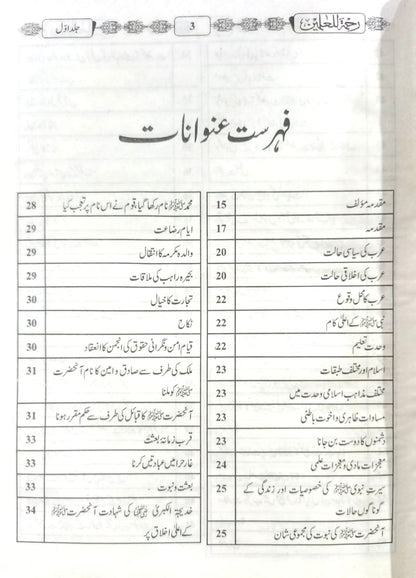 رحمۃ للعالمین
3
جلد اوّل
فہرست عنوانات
مقدمہ مؤلف 15
مقدمہ 17
عرب کی سیاسی حالت 20
عرب کی اخلاقی حالت 20
عرب کا محل وقوع 22
نبی ﷺ کے اعلیٰ کام 22
وحدت تعلیم 22
اسلام اور مختلف طبقات 23
مختلف مذاہب اسلامی وحدت میں 23
مساوات ظاہری و اخوت باطنی 23
دشمنوں کا دوست بن جانا 23
معجزات مادی و معجزات علمی 24
سیرت نبوی ﷺ کی خصوصیات اور زندگی کے 25
گوناگوں حالات
آنحضرت ﷺ کی نبوت کی مجموعی شان 25
محمد ﷺ نام رکھا گیا، قوم نے اس نام پر تعجب کیا 28
ایام رضاعت 29
والدہ مکرمہ کا انتقال 29
بحیرہ راہب کی ملاقات 29
تجارت کا خیال 30
نکاح 30
قیام امن و نگرانی حقوق کی انجمن کا انعقاد 30
ملک کی طرف سے صادق و امین کا نام آنحضرت 31
ﷺ کو ملنا
آنحضرت ﷺ کا قبائل کی طرف سے حکم مقرر ہونا 31
قرب زمانہ بعثت 33
غار حرا میں عبادتیں کرنا 33
بعثت و نبوت 33
خدیجۃ الکبریٰ کی شہادت آنحضرت ﷺ 34
کے اعلیٰ اخلاق پر